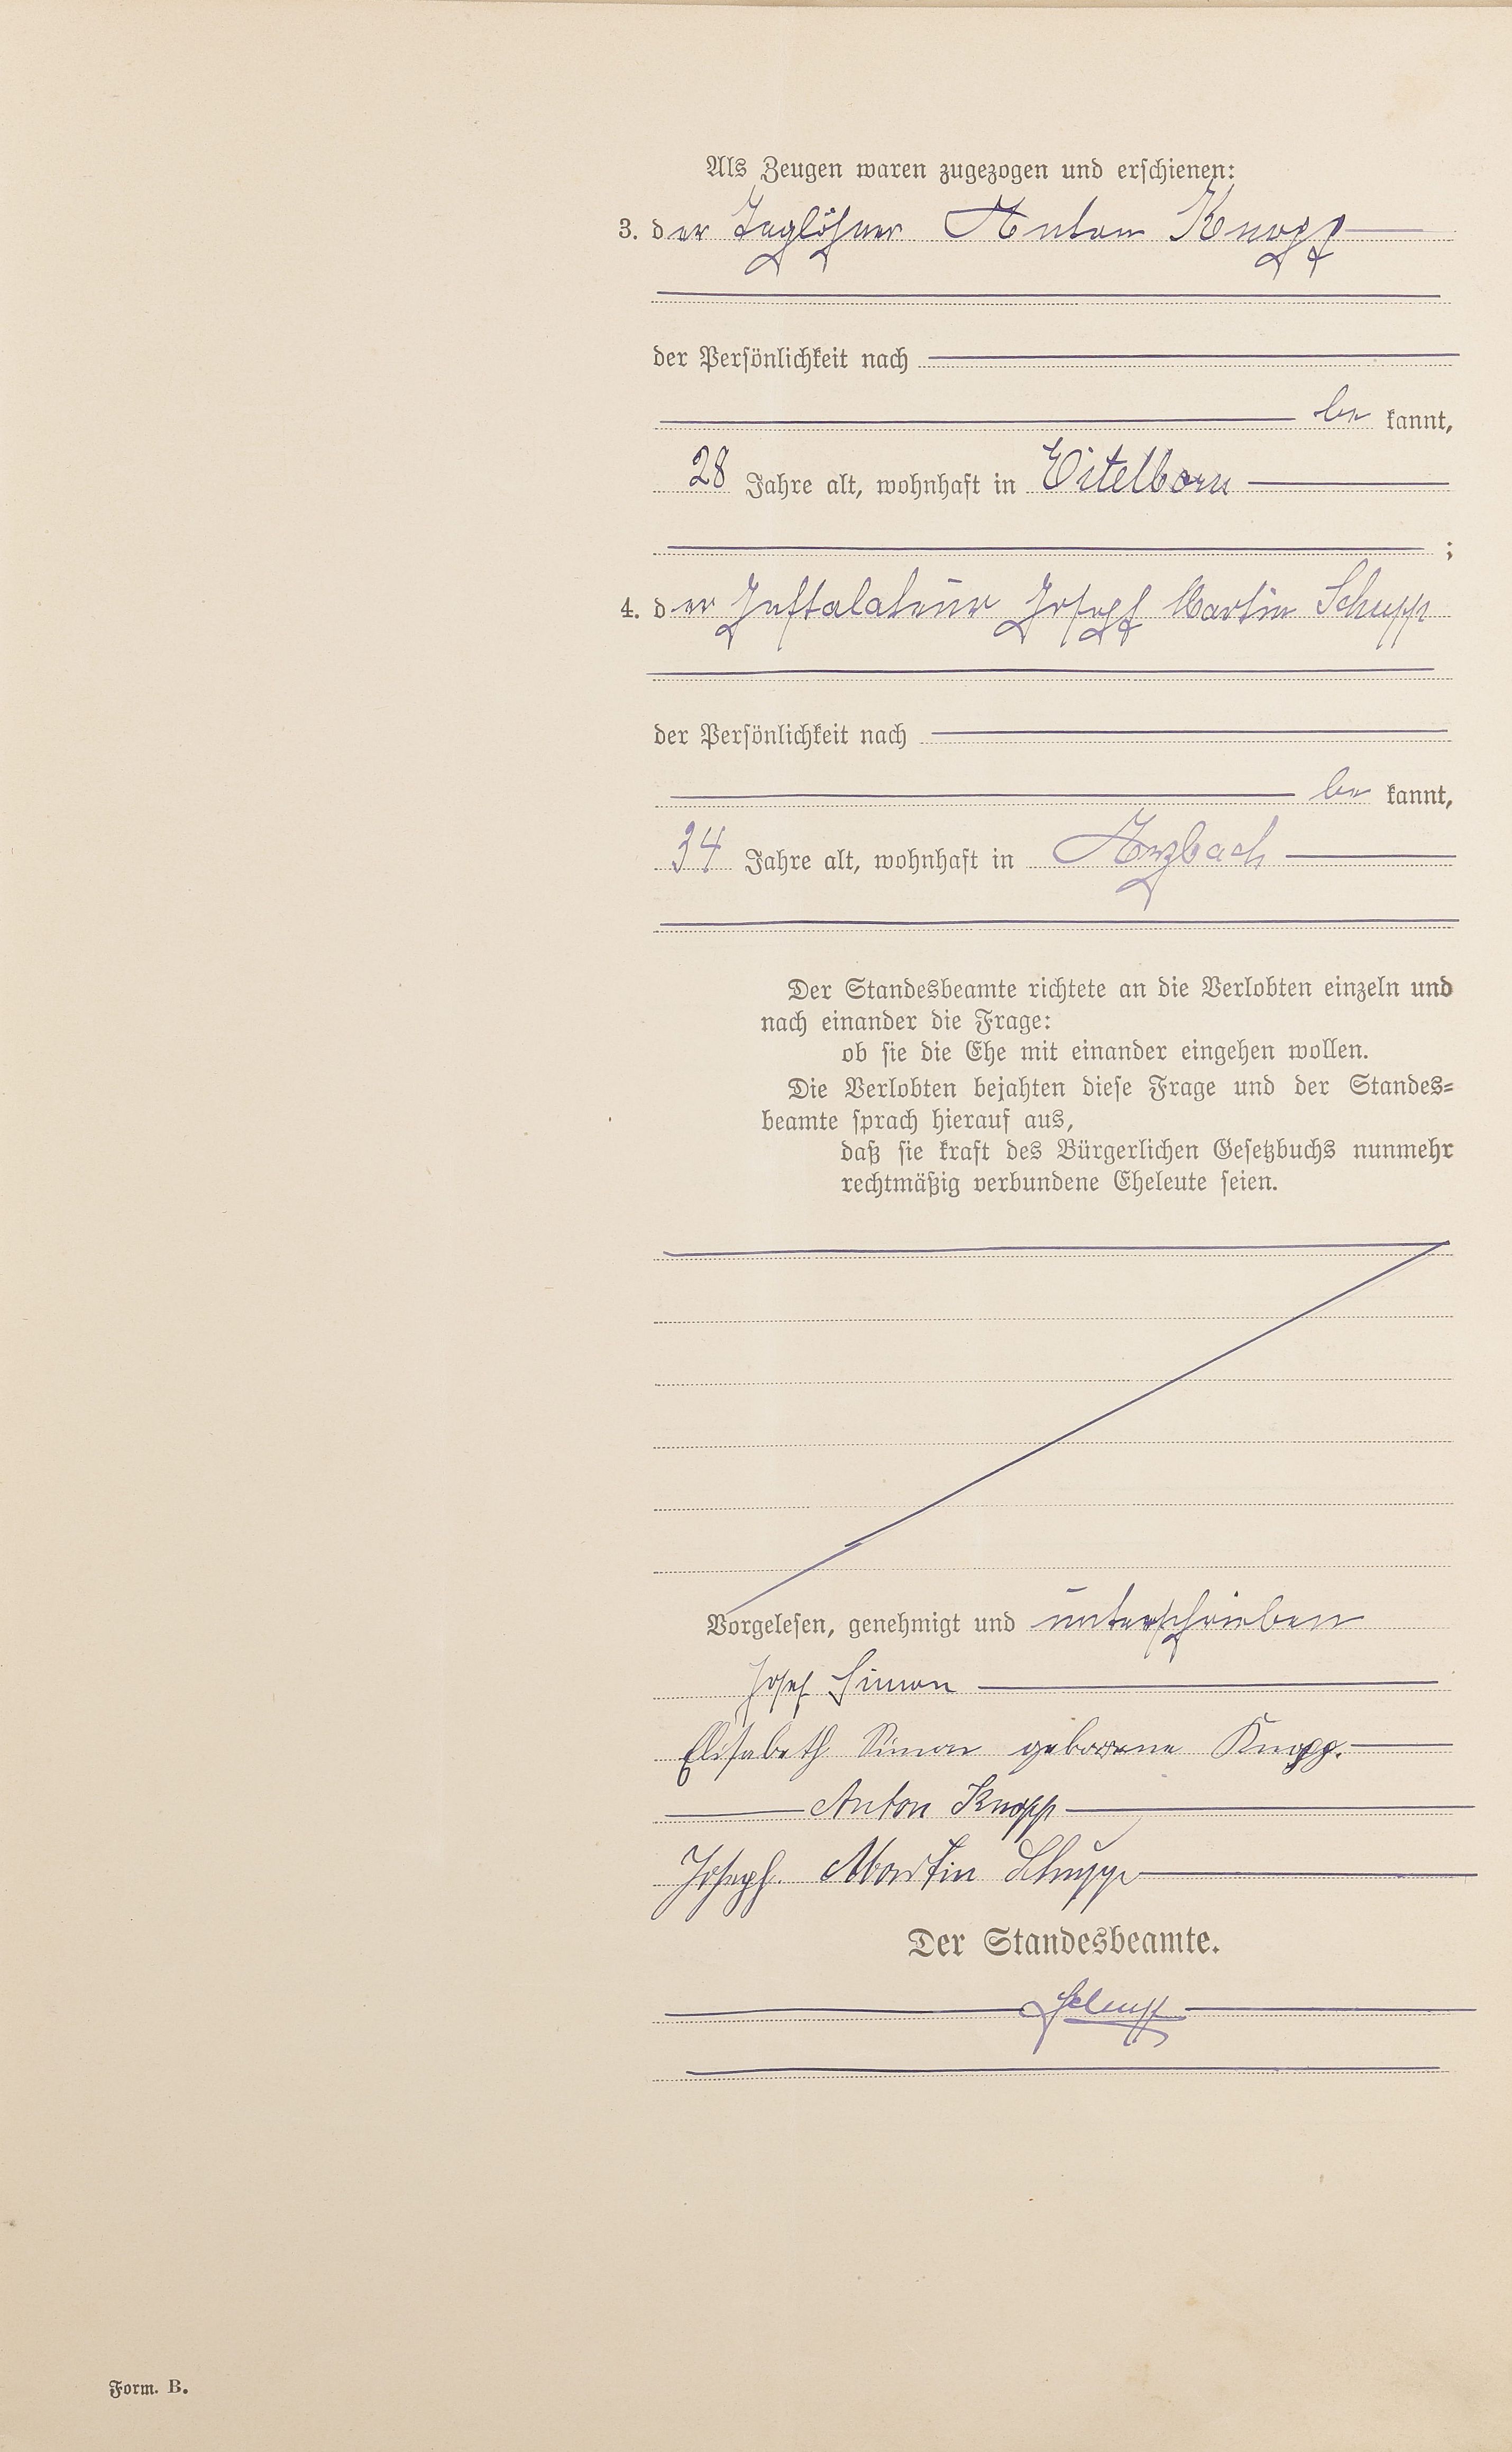 Als Zeugen waren zugezogen und erschienen:
3. der Taglöhner Anton Knopp
der Persönlichkeit nach
be kannt,
28 Jahre alt, wohnhaft in Eitelborn
;
4. der Installateur Joseph Martin Schupp
der Persönlichkeit nach
be kannt,
34 Jahre alt, wohnhaft in Arzbach
Der Standesbeamte richtete an die Verlobten einzeln und
nach einander die Frage:
ob sie die Ehe mit einander eingehen wollen.
Die Verlobten bejahten diese Frage und der Standes=
beamte sprach hierauf aus,
daß sie kraft des Bürgerlichen Gesetzbuchs nunmehr
rechtmäßig verbundene Eheleute seien.
Vorgelesen, genehmigt und unterschrieben
Josef Simon
Elisabeth Simon geborene Knopp.
Anton Knopp
Joseph Martin Schupp
Der Standesbeamte.
Form. B.